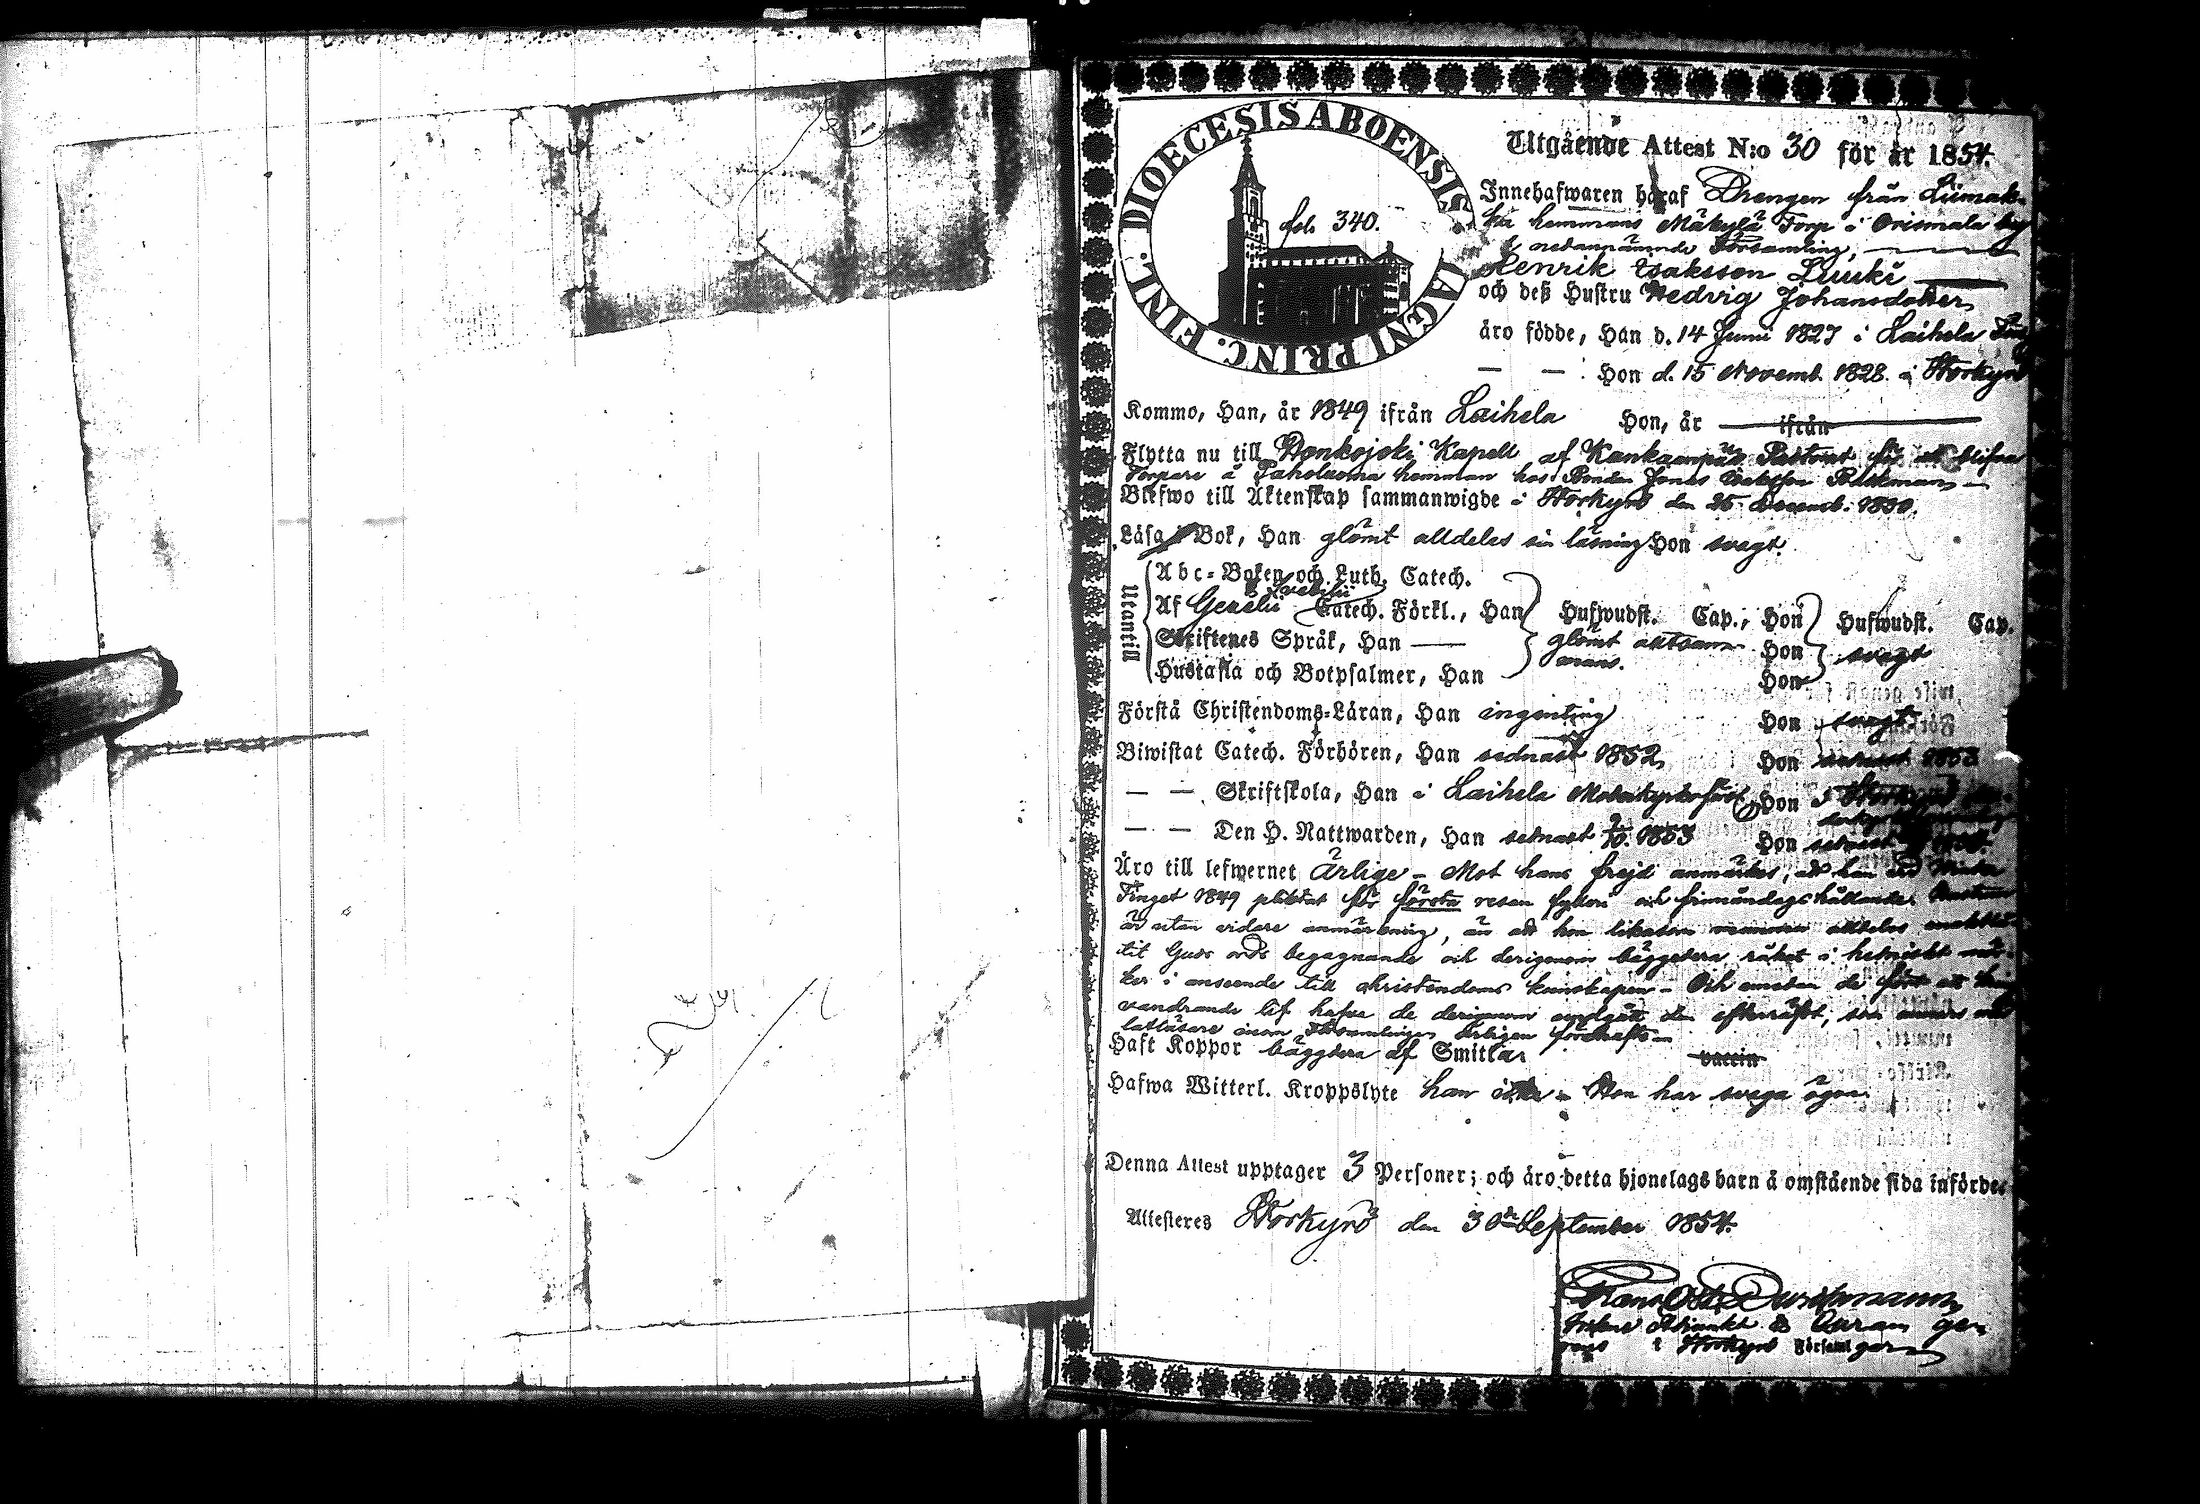 DIOECESIS ABOENSIS MAGNI PRINC. FINL.
fol. 340.
Utgående Attest N:o 30 för år 1854.
Innehafwaren häraf Drengen från
hemmans Mäkylä Torp i Orismala by
i nedannämnde Församling,
Henrik Isaksson Luuki
och deß Hustru Hedvig Johansdotter
äro födde, Han d. 14 Junii 1827 i Laihela
— — Hon d. 15 Novemb. 1828. i Storkyro
Kommo, Han, år 1849 ifrån Laihela Hon, år — ifrån
Flytta nu till Honkojoki Kapell af Kankaanpää Pastorat för att blifva
Torpare å Paholuoma hemman hos Bonden Jonas
Blefwo till Äktenskap sammanwigde i Storkyro den 26 Decemb. 1850.
Läsa i Bok, Han glömt alldeles sin läsning Hon svagt.
Utantill
Abc-Boken och Luth. Catech.
Af Gezelii Svebilii Catech. Förkl., Han Hufwudst. Cap., Hon Hufwudst. Cap.
Skriftenes Språk, Han — glömt alltsammans. Hon svagt
Hustafla och Botpsalmer, Han Hon
Förstå Christendoms-Läran, Han ingenting Hon svagt
Biwistat Catech. Förhören, Han sednast 1852, Hon sednast 1853
— — Skriftskola, Han i Laihela Moderkyrkoförs. Hon i Storkyro
— — Den H. Nattwarden, Han sednast 1853 Hon sednast
Äro till lefwernet Ärlige - Mot hans frejd anmärkes, att han vid Vinter
Tinget 1849 pliktat för första resan fylleri och Hustrun
är utan vidare anmärkning, än att hon likasom mannen alldeles
tit Guds ords begagnande och derigenom bäggedera råkat i hedniskt mör-
ker i anseende till christendoms kunskapen - Och emedan de fört ett
vandrande lif hafva de derigenom undgått den efterräfst, som annars med
latläsare inom Församlingen årligen förehafts
Haft Koppor bäggdera af Smitta. vaccin
Hafwa Witterl. Kroppslyte han icke - Hon har svaga ögon.
Denna Attest upptager 3 Personer; och äro detta hjonelags barn å omstående sida införde.
Attesteres Storkyro den 30de September 1854.
Frans Durchman
Adjunkt
i Storkyro Församl